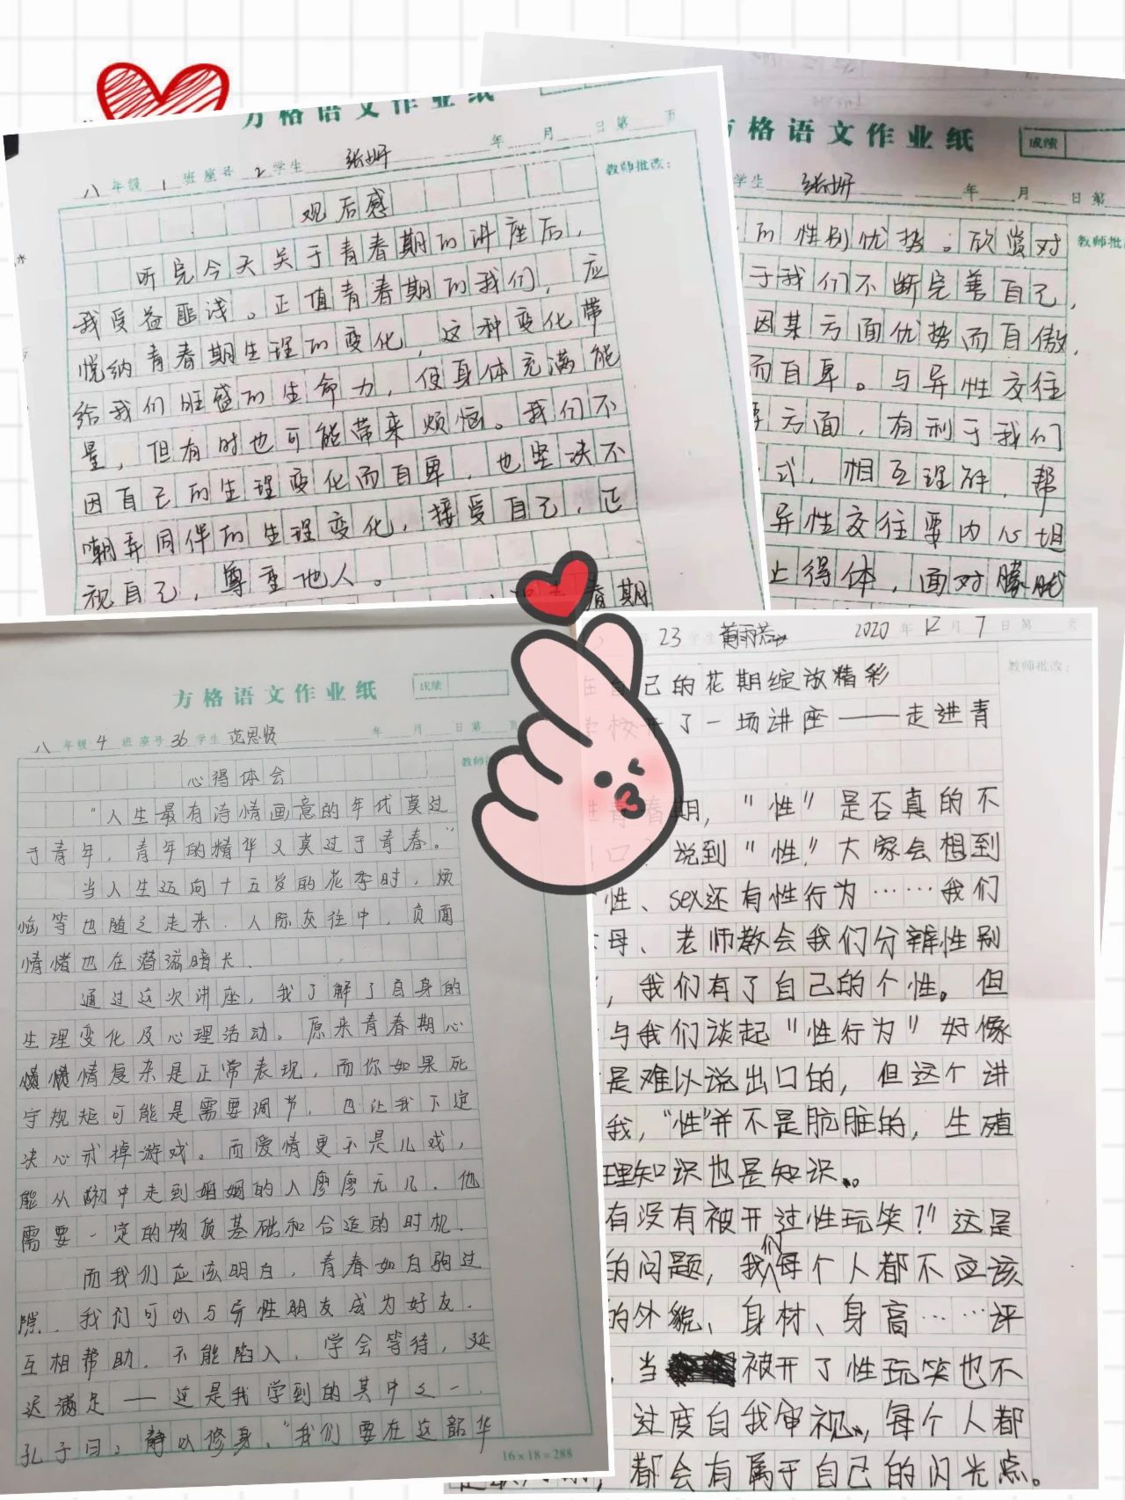 方格语文作业纸
八年级1班座号2学生张妍 年 月 日第 页
教师批改：
观后感
听完今天关于青春期的讲座后，
我受益匪浅。正值青春期的我们，应
悦纳青春期生理的变化，这种变化带
给我们旺盛的生命力，使身体充满能
量，但有时也可能带来烦恼。我们不
因自己的生理变化而自卑，也坚决不
嘲弄同伴的生理变化，接受自己，正
视自己，尊重他人。
青春期
方格语文作业纸
成绩
学生 张妍 年 月 日第
教师批
的性别优势。欣赏对
于我们不断完善自己，
因某方面优势而自傲，
而自卑。与异性交往
方面，有利于我们
式，相互理解，帮
异性交往要内心坦
止得体，面对朦胧
方格语文作业纸
成绩
八年级4班座号36学生范思贤 年 月 日第
教师
心得体会
“人生最有诗情画意的年代莫过
于青年，青年的精华又莫过于青春。”
当人生迈向十五岁的花季时，烦
恼等也随之走来，人际交往中，负面
情绪也在潜滋暗长。
通过这次讲座，我了解了自身的
生理变化及心理活动。原来青春期心
情复杂是正常表现，而你如果死
守规矩可能是需要调节，也让我下定
决心戒掉游戏。而爱情更不是儿戏，
能从初中走到婚姻的人廖廖无几。他
需要一定的物质基础和合适的时机。
而我们应该明白，青春如白驹过
隙，我们可以与异性朋友成为好友，
互相帮助，不能陷入，学会等待，延
迟满足——这是我学到的其中之一。
孔子曰：静以修身，“我们要在这韶华
16×18=288
23 黄雨茹 2020年12月7日第
教师批改：
在自己的花期绽放精彩
学校开了一场讲座——走进青
青春期，“性”是否真的不
口？说到“性，”大家会想到
性、sex还有性行为……我们
父母、老师教会我们分辨性别
，我们有了自己的个性。但
与我们谈起“性行为”好像
是难以说出口的，但这个讲
我，“性”并不是肮脏的，生殖
理知识也是知识。
有没有被开过性玩笑？”这是
的问题，我们每个人都不应该
的外貌、身材、身高……评
，当被开了性玩笑也不
过度自我审视，每个人都
都会有属于自己的闪光点。